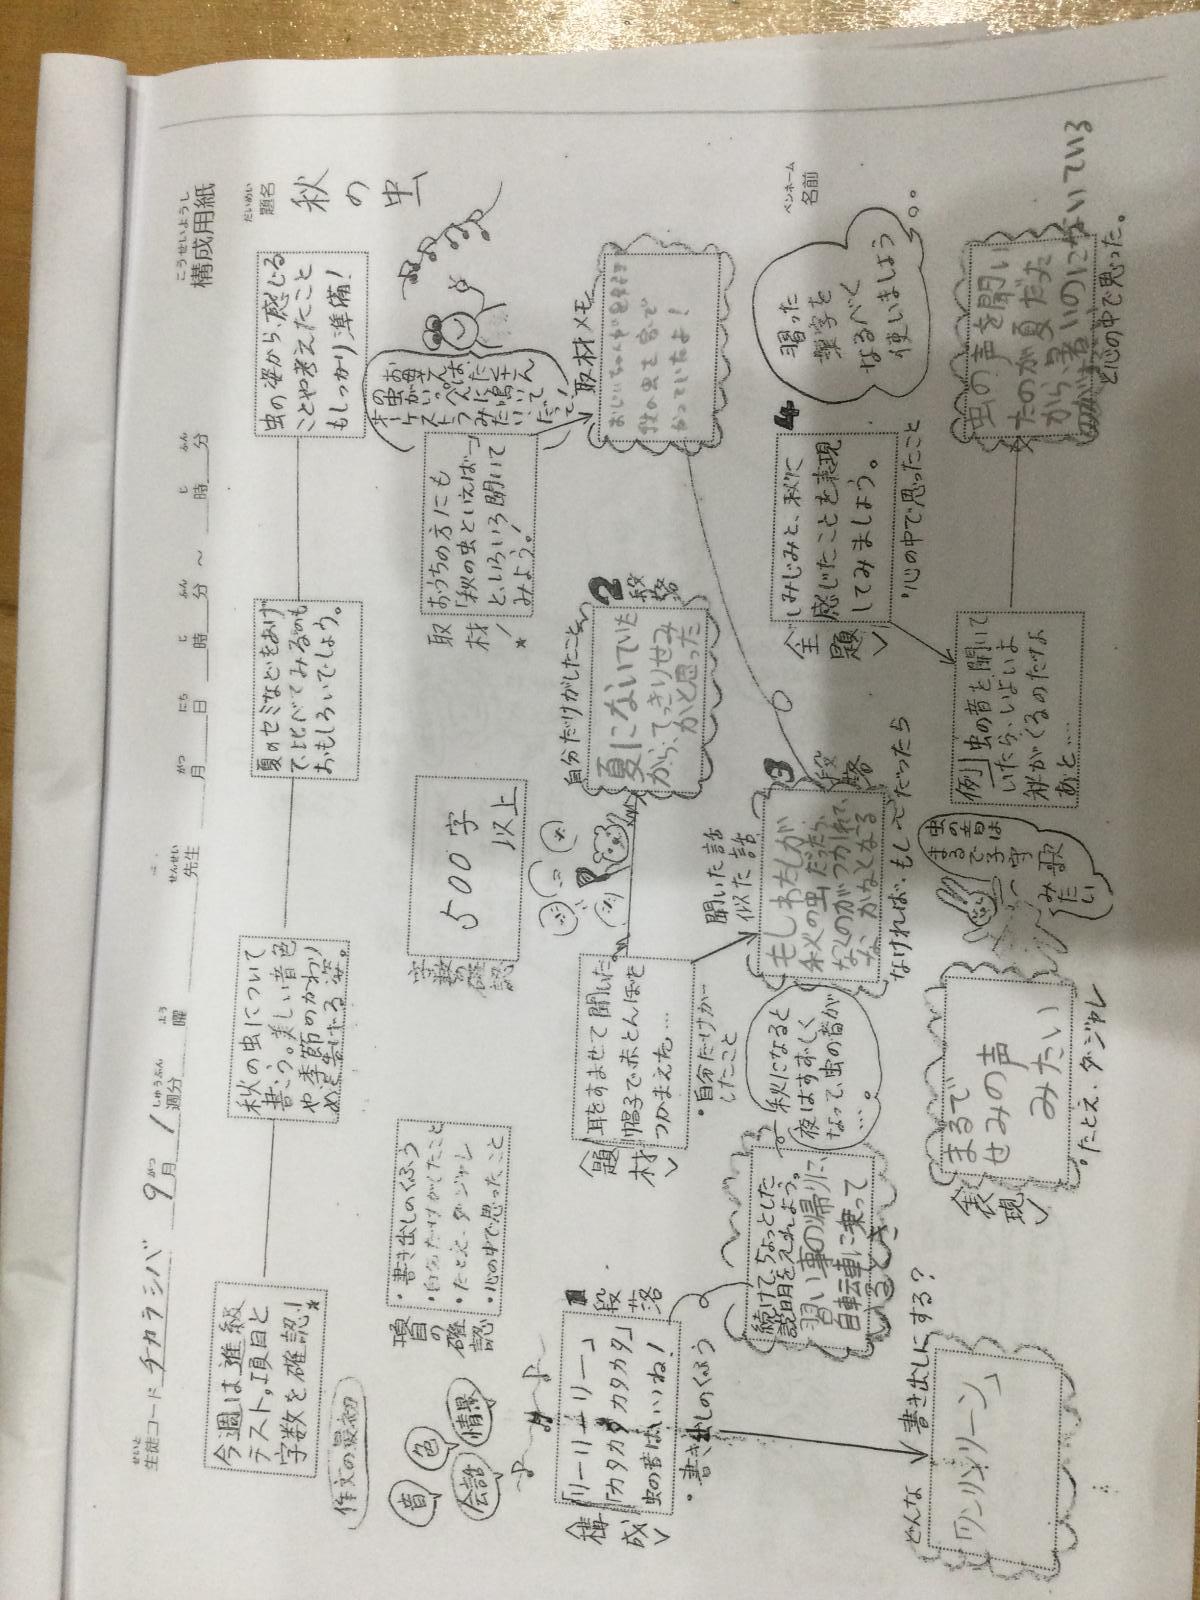 構成用紙
こうせいようし
生徒コード チカラシバ 9月 1週分 曜 先生 月 日 時 分 ～ 時 分
題名
だいめい
秋の虫
ペンネーム
名前
今週は進級
テスト。項目と
字数を確認!
秋の虫について
書こう。美しい音色
や季節のかわり
めを告げる姿。
夏のセミなどをあげ
て、比べてみるのも
おもしろいでしょう。
虫の姿から、感じる
ことや考えたこと
もしっかり準備!
作文の最初
音
色
会話
情景
項目の確認
・書き出しのくふう
・自分だけがしたこと
・たとえ・ダジャレ
・心の中で思ったこと
字数の確認
500字
以上
取材
おうちの方にも
「秋の虫といえば…」
と、いろいろ聞いて
みよう!
お母さんは、
秋の虫がいっぺんに鳴くと
オーケストラみたいだって!
取材メモ
おじいちゃんが
秋の虫を家で
かっていたよ!
〈構成〉
1段落
「リーリーリー」
「カタカタカタカタ」
虫の音はいいね!
・書き出しのくふう
どんな書き出しにする?
「リンリンリーン」
続けて、ちょっとした
説明を入れよう。
習い事の帰りに、
自転車に乗って
いるとき
秋になると
夜はすずしく
なって、虫の音が
…。
〈題材〉
耳をすませて聞いた
帽子で赤とんぼを
つかまえた…
・自分だけが
したこと
2段落
自分だけがしたこと
夏にないていた
から、てっきりせみ
かと思った
3段落
聞いた話
似た話
もしわたしが
秋の虫だったら、
なくのがつかれて、
なかなくなる
なければ・もし～だったら
〈表現〉
まるで
せみの声
みたい
・たとえ・ダジャレ
虫の音は
まるで子守
歌
みたい
4
〈主題〉
しみじみと、秋に
感じたことを表現
してみましょう。
・心の中で思ったこと
例 虫の音を聞いて
いたら、いよいよ
秋がくるのだなぁ
あと…。
習った
漢字を
なるべく
使いましょう
虫の声を聞い
たのが夏だった
から、暑いのにないている
と心の中で思った。